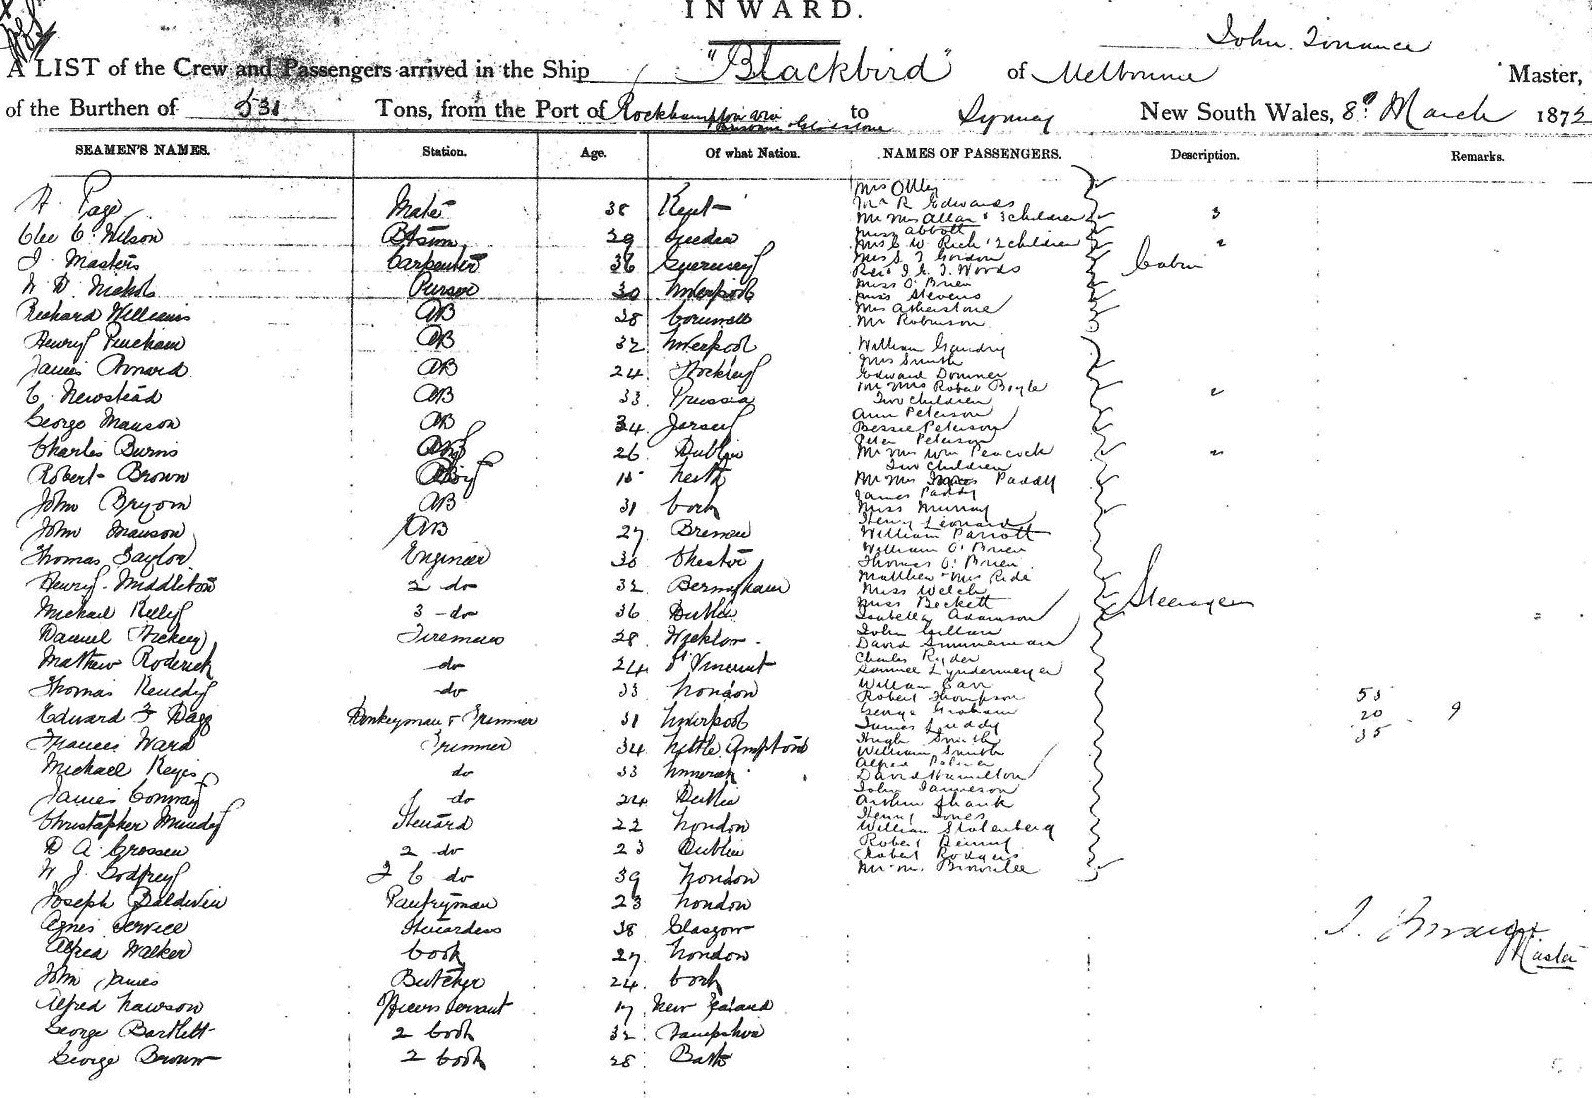 INWARD.
John Torrance
A LIST of the Crew and Passengers arrived in the Ship "Blackbird" of Melbourne Master,
of the Burthen of 531 Tons, from the Port of Rockhampton via Gladstone to Sydney New South Wales, 8th March 187
SEAMEN'S NAMES. Station. Age. Of what Nation. NAMES OF PASSENGERS. Description. Remarks.
Page Mate 38 Kent
Wilson 29
J. Masters Carpenter 36 Guernsey
W D. Nichols Purser 30 Liverpool
Richard Williams AB 38 Cornwall
Henry AB 32 Liverpool
James AB 24
C. Newstead AB 33 Prussia
George Manson AB 34 Jersey
Charles Burns AB 26 Dublin
Robert Brown Boy 15 Leith
John Bryom AB 31 Cork
John Manson AB 27 Bremen
Thomas Taylor Engineer 30 Chester
Henry Middleton 2 do 32
Michael Kelly 3 do 36 Dublin
Daniel Fireman 28 Wicklow
Mathew Roderick do 24 St Vincent
Thomas Kenedy do 33 London
Edward F Dagg Donkeyman & Trimmer 31 Liverpool
Frances Ward Trimmer 34 Little Ampton
Michael Keyes do 33
James Conway do 24 Dublin
Christopher Mundy Steward 22 London
D A. Crossen 2 do 23 Dublin
W J. Godfrey do 39 London
Joseph Baldwin Pantryman 23 London
Agnes Service Stewardess 38 Glasgow
Alfred Walker Cook 27 London
John James Butcher 24 Cork
Alfred Lawson Servant 17 New Zealand
George Bartlett 2 Cook 32 Hampshire
George Brown 2 Cook 28 Bath
Mrs Ottley
Mr R Edwards
Mr Mrs Allan & 3 children 3
Miss Abbott
Mrs C W Rich 2 children 2
Mrs S T Gordon
Rev J. E. T. Woods
Miss O'Brien
Miss Stevens
Mrs Atherstone
Mr Robinson
Cabin
William Gaudry
Mrs Smith
Edward
Mr Mrs Robert Boyle
Two Children
Ann Peterson
Bessie Peterson
Peter Peterson
Mr Mrs Wm Peacock
Two Children
Mr Mrs Paddy
James Paddy
Miss Murray
Henry Leonard
William Parrott
William O'Brien
Thomas O'Brien
Matthew Mrs Ride
Miss Welch
Miss Beckett
Isabella Adamson
John
David Simmerman
Charles Ryder
Samuel Lyndermeyer
William Carr
Robert Thompson
George Graham
James
Hugh Smith
William Smith
Alfred Palmer
David Hamilton
John Jameson
Arthur Shank
Henry Jones
William Stolenberg
Robert
Robert Rodgers
Mr Brownlee
Steerage
53
20 9
35
Master